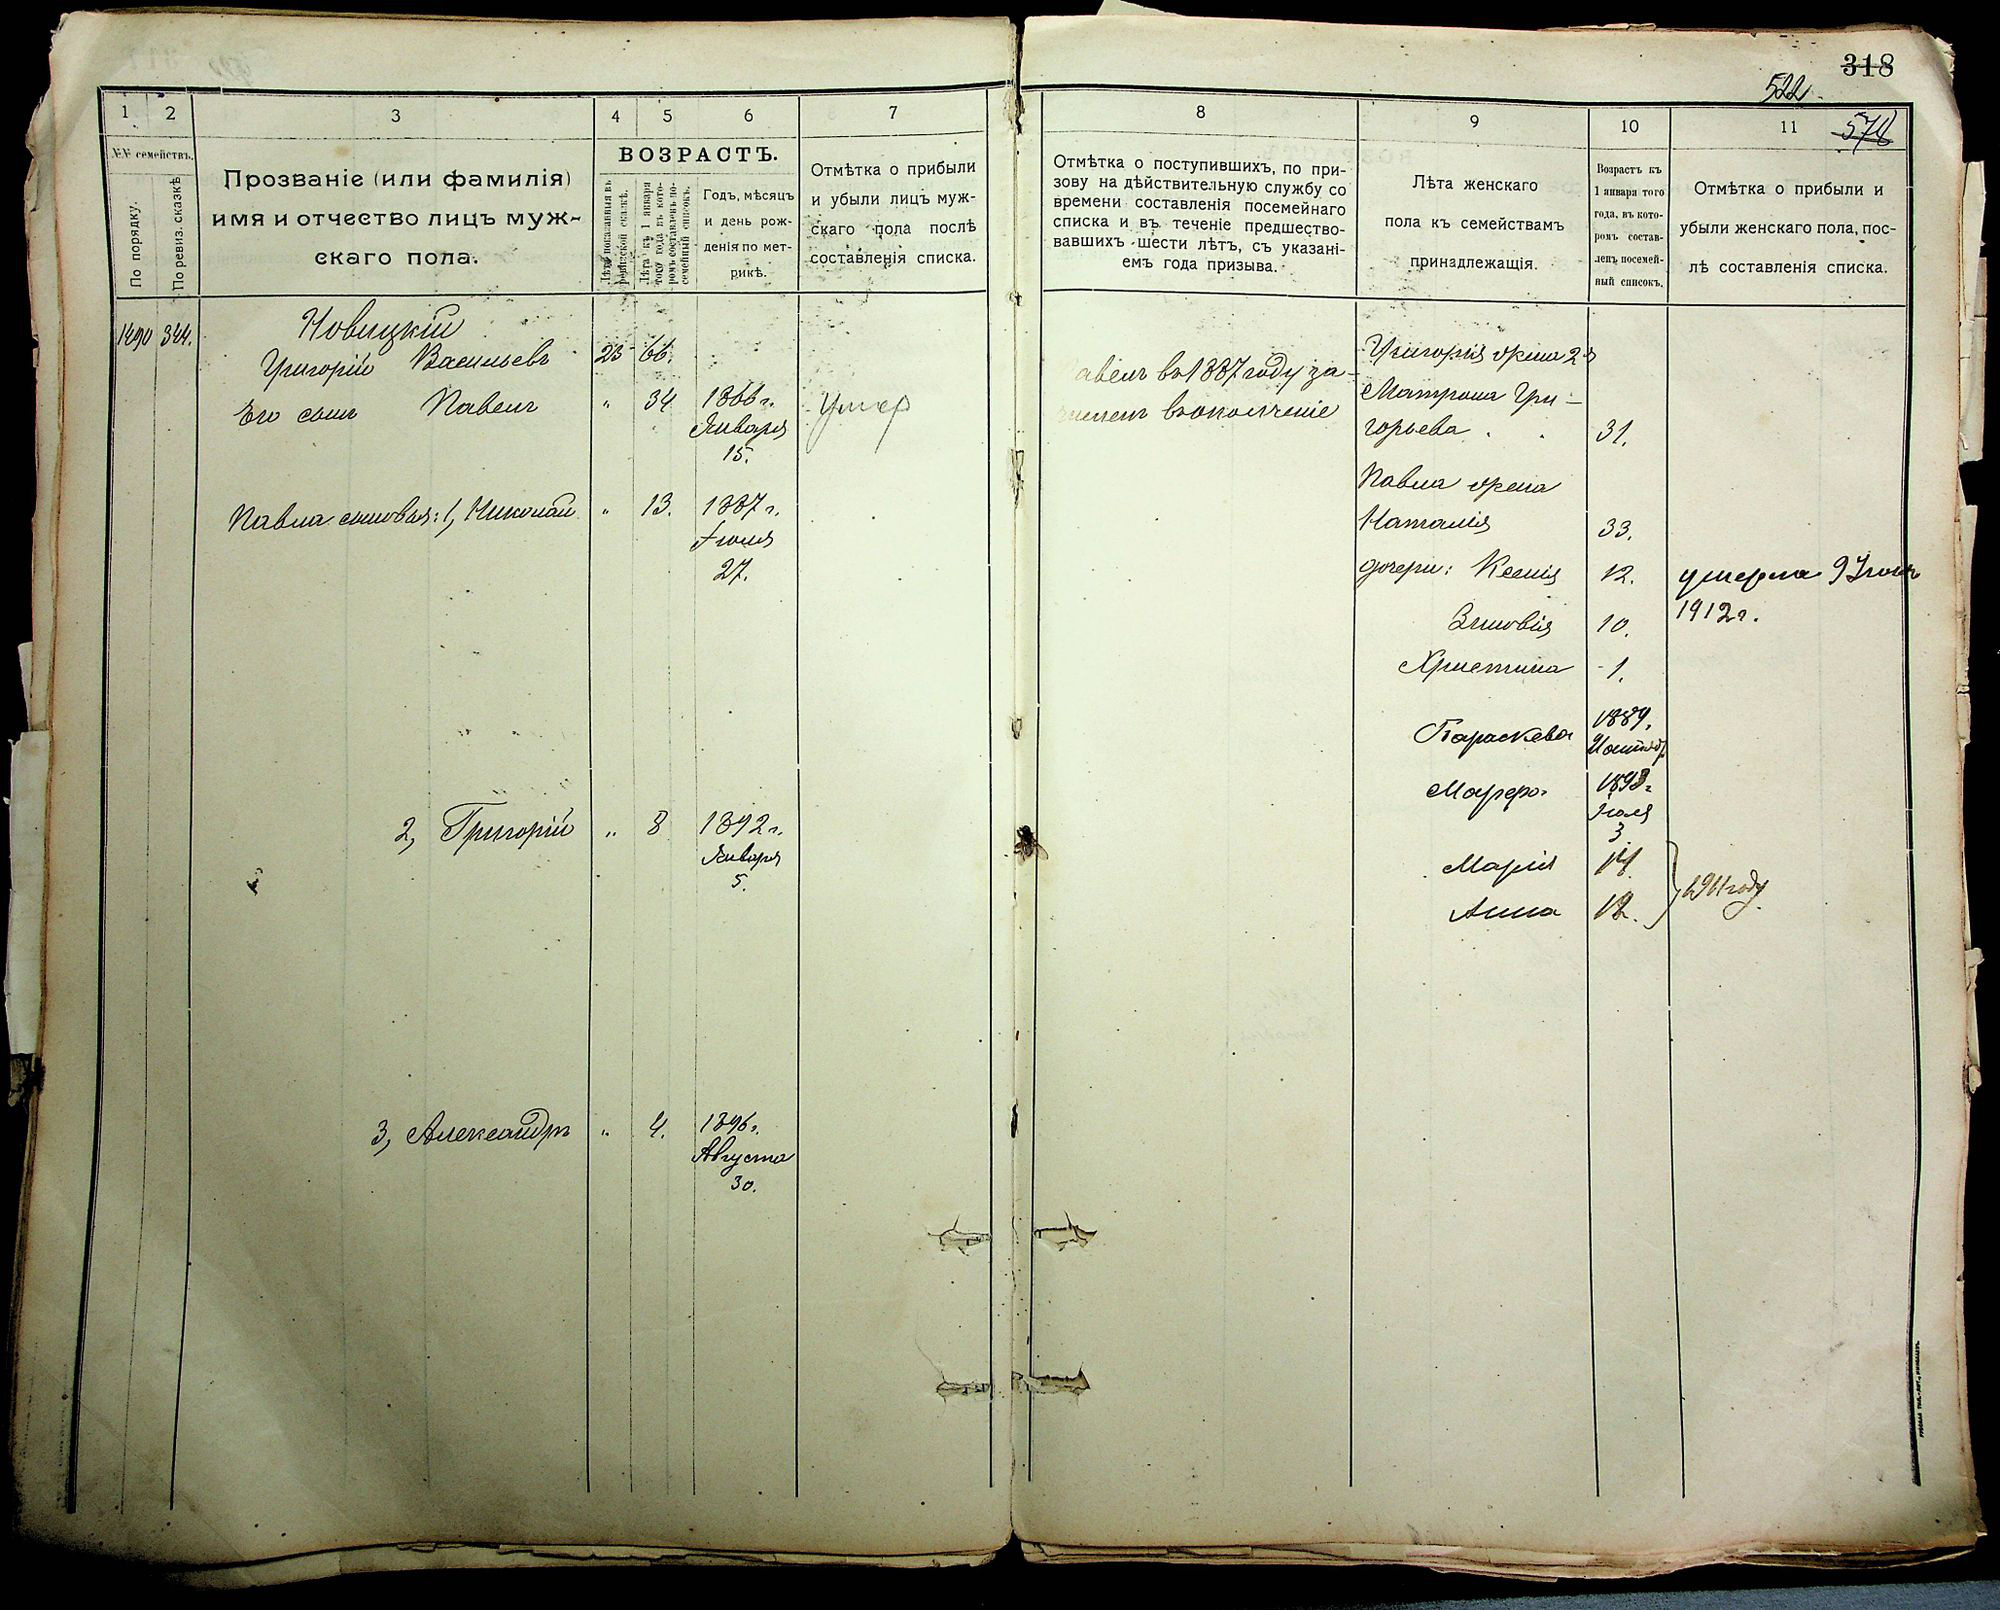 318
522
578
1
2
3
4
5
6
7
№№ семействъ.
По порядку.
По ревиз. сказкѣ
Прозваніе (или фамилія)
имя и отчество лицъ муж-
скаго пола.
ВОЗРАСТЪ.
Лѣта показанныя въ
ревизской сказкѣ.
Лѣта къ 1 января
того года въ кото-
ромъ составленъ по-
семейный списокъ.
Годъ, мѣсяцъ
и день рож-
денія по мет-
рикѣ.
Отмѣтка о прибыли
и убыли лицъ муж-
скаго пола послѣ
составленія списка.
1490 344. Новицкій
Григорій Васильевъ 23 66.
Его сынъ Павелъ " 34 1866 г. умер
Января
15.
Павла сыновья: 1, Николай " 13. 1887 г.
Іюля
27.
2, Григорій " 8 1892 г.
Января
5.
3, Александръ " 4. 1896 г.
Августа
30.
8
9
10
11
Отмѣтка о поступившихъ, по при-
зову на дѣйствительную службу со
времени составленія посемейнаго
списка и въ теченіе предшество-
вавшихъ шести лѣтъ, съ указані-
емъ года призыва.
Лѣта женскаго
пола къ семействамъ
принадлежащія.
Возрастъ къ
1 января того
года, въ кото-
ромъ состав-
ленъ посемей-
ный списокъ.
Отмѣтка о прибыли и
убыли женскаго пола, пос-
лѣ составленія списка.
авелъ въ 1887 году за-
численъ въ ополченіе
Григорія жена 2я
Матрона Гри-
горьева 31.
Павла жена
Наталія 33.
дочери: Ксенія 12. умерла 9 Іюля
1912 г.
Зиновія 10.
Христина 1.
Параскева 1889.
Марфа 1893 г.
Іюля
3
Марія 14.
Анна 12. 1911 году